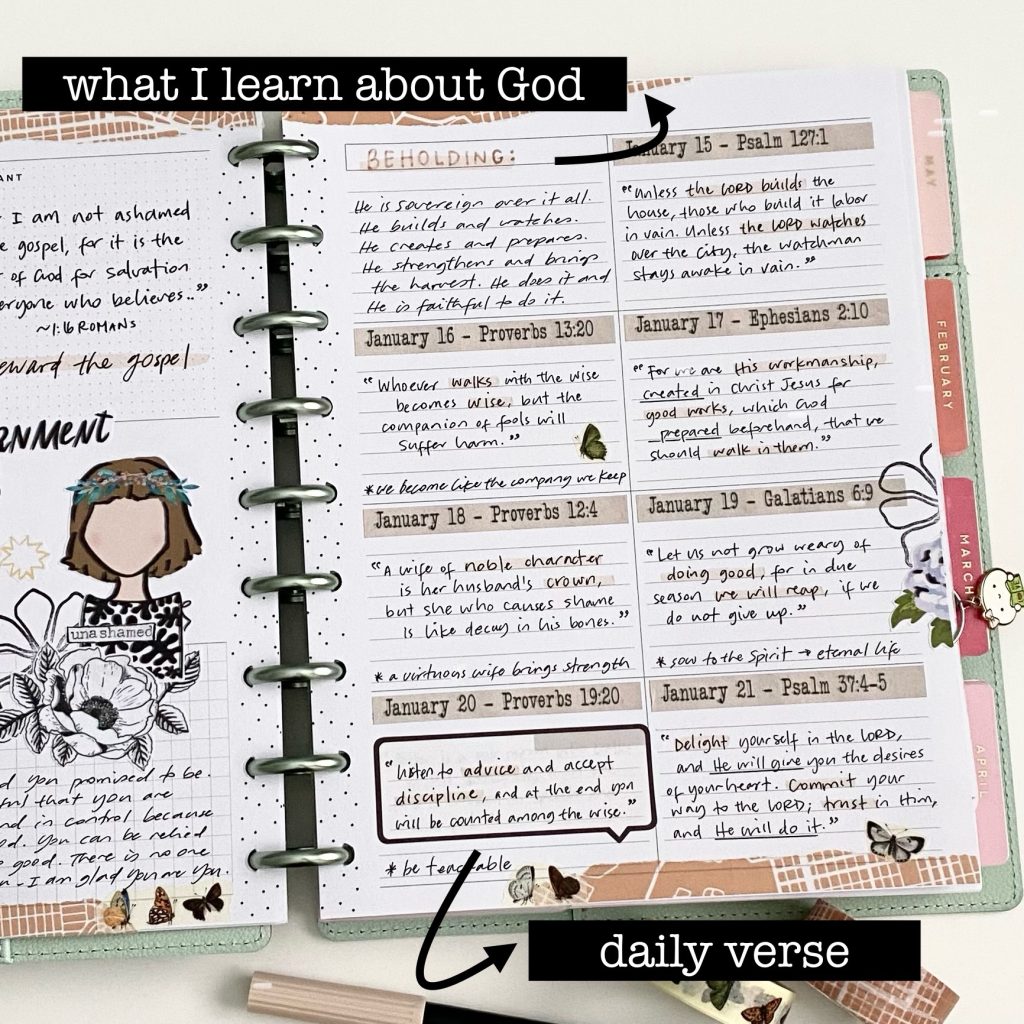 what I learn about God
ANT
I am not ashamed
gospel, for it is the
of God for salvation
everyone who believes.."
~1:16 ROMANS
the gospel
unashamed
you promised to be.
that you are
in control because
You can be relied
good. There is no one
I am glad you are you.
BEHOLDING:
He is sovereign over it all.
He builds and watches.
He creates and prepares.
He strengthens and brings
the harvest. He does it and
He is faithful to do it.
January 15 - Psalm 127:1
"Unless the LORD builds the
house, those who build it labor
in vain. Unless the LORD watches
over the city, the watchman
stays awake in vain."
January 16 - Proverbs 13:20
"Whoever walks with the wise
becomes wise, but the
companion of fools will
suffer harm."
*we become like the company we keep
January 17 - Ephesians 2:10
"For we are His workmanship,
created in Christ Jesus for
good works, which God
prepared beforehand, that we
should walk in them."
January 18 - Proverbs 12:4
"A wife of noble character
is her husband's crown,
but she who causes shame
is like decay in his bones."
* a virtuous wife brings strength
January 19 - Galatians 6:9
"Let us not grow weary of
doing good, for in due
season we will reap, if we
do not give up."
* sow to the Spirit → eternal life
January 20 - Proverbs 19:20
"Listen to advice and accept
discipline, and at the end you
will be counted among the wise."
* be teachable
January 21 - Psalm 37:4-5
"Delight yourself in the LORD,
and He will give you the desires
of your heart. Commit your
way to the LORD; trust in Him,
and He will do it."
MAY
FEBRUARY
MARCH
APRIL
daily verse